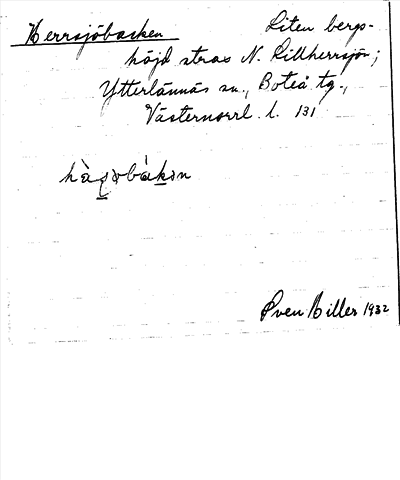 Herrsjöbacken Liten bergs-
höjd strax N. Lillherrsjön;
Ytterlännäs sn., Boteå tg.,
Västernorrl. l. 131
Sven Hiller 1932